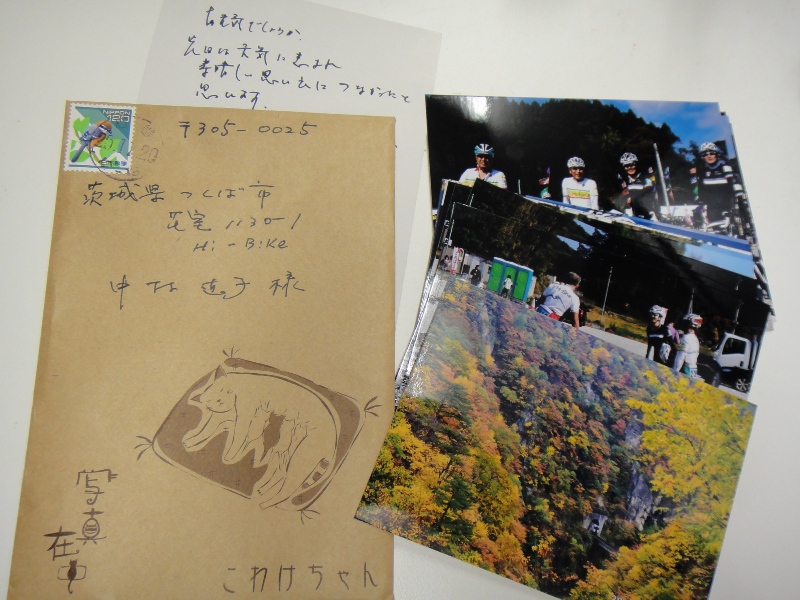 お元気でしょうか.
先日は天気に恵まれ
素晴しい思い出に つながったと
思います.
NIPPON
120
日本郵便
〒305-0025
茨城県つくば市
花室1130-1
Hi-Bike
中村 様
写真
在中
こわけちゃん